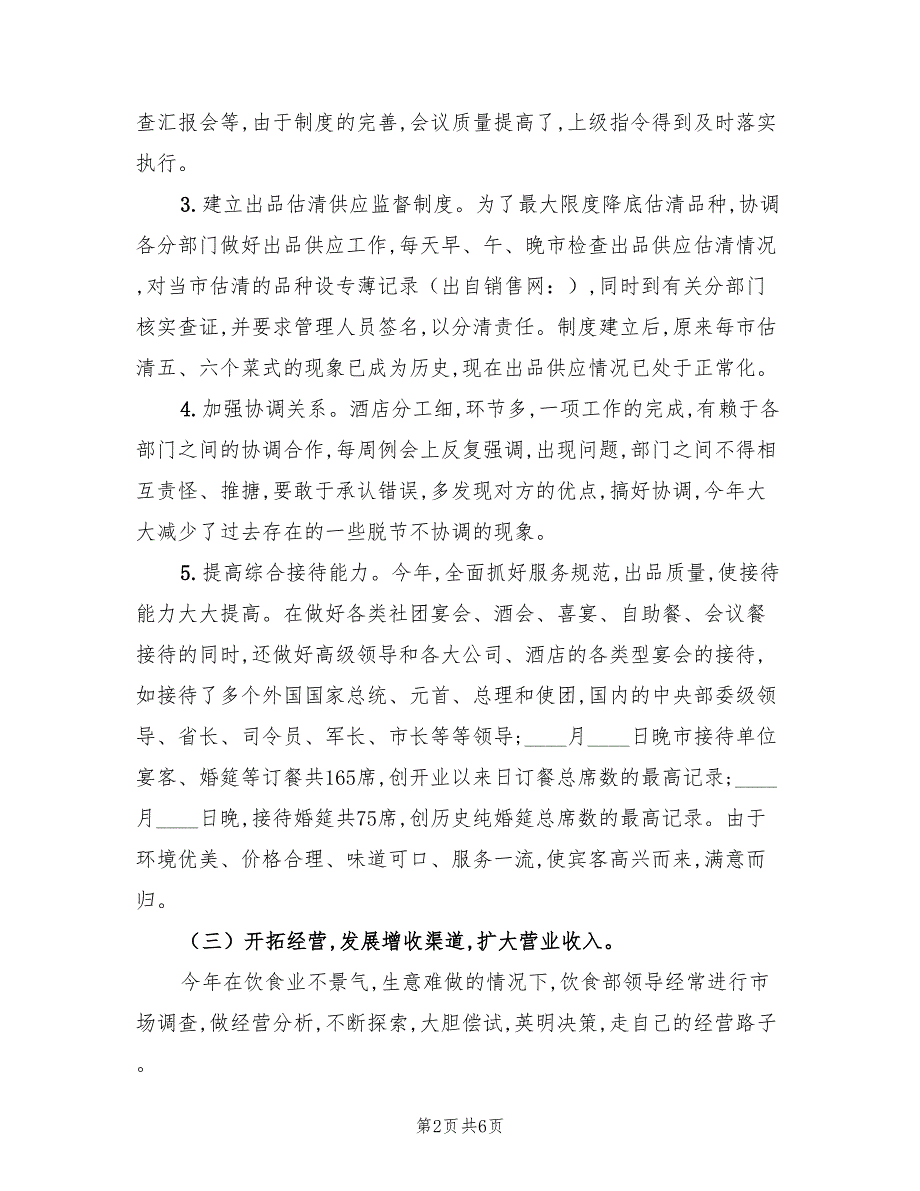 查汇报会等,由于制度的完善,会议质量提高了,上级指令得到及时落实
执行。
3.建立出品估清供应监督制度。为了最大限度降底估清品种,协调
各分部门做好出品供应工作,每天早、午、晚市检查出品供应估清情况
,对当市估清的品种设专薄记录（出自销售网：）,同时到有关分部门
核实查证,并要求管理人员签名,以分清责任。制度建立后,原来每市估
清五、六个菜式的现象已成为历史,现在出品供应情况已处于正常化。
4.加强协调关系。酒店分工细,环节多,一项工作的完成,有赖于各
部门之间的协调合作,每周例会上反复强调,出现问题,部门之间不得相
互责怪、推搪,要敢于承认错误,多发现对方的优点,搞好协调,今年大
大减少了过去存在的一些脱节不协调的现象。
5.提高综合接待能力。今年,全面抓好服务规范,出品质量,使接待
能力大大提高。在做好各类社团宴会、酒会、喜宴、自助餐、会议餐
接待的同时,还做好高级领导和各大公司、酒店的各类型宴会的接待,
如接待了多个外国国家总统、元首、总理和使团,国内的中央部委级领
导、省长、司令员、军长、市长等等领导;____月____日晚市接待单位
宴客、婚筵等订餐共165席,创开业以来日订餐总席数的最高记录;____
月____日晚,接待婚筵共75席,创历史纯婚筵总席数的最高记录。由于
环境优美、价格合理、味道可口、服务一流,使宾客高兴而来,满意而
归。
（三）开拓经营,发展增收渠道,扩大营业收入。
今年在饮食业不景气,生意难做的情况下,饮食部领导经常进行市
场调查,做经营分析,不断探索,大胆偿试,英明决策,走自己的经营路子
。
第2页 共6页